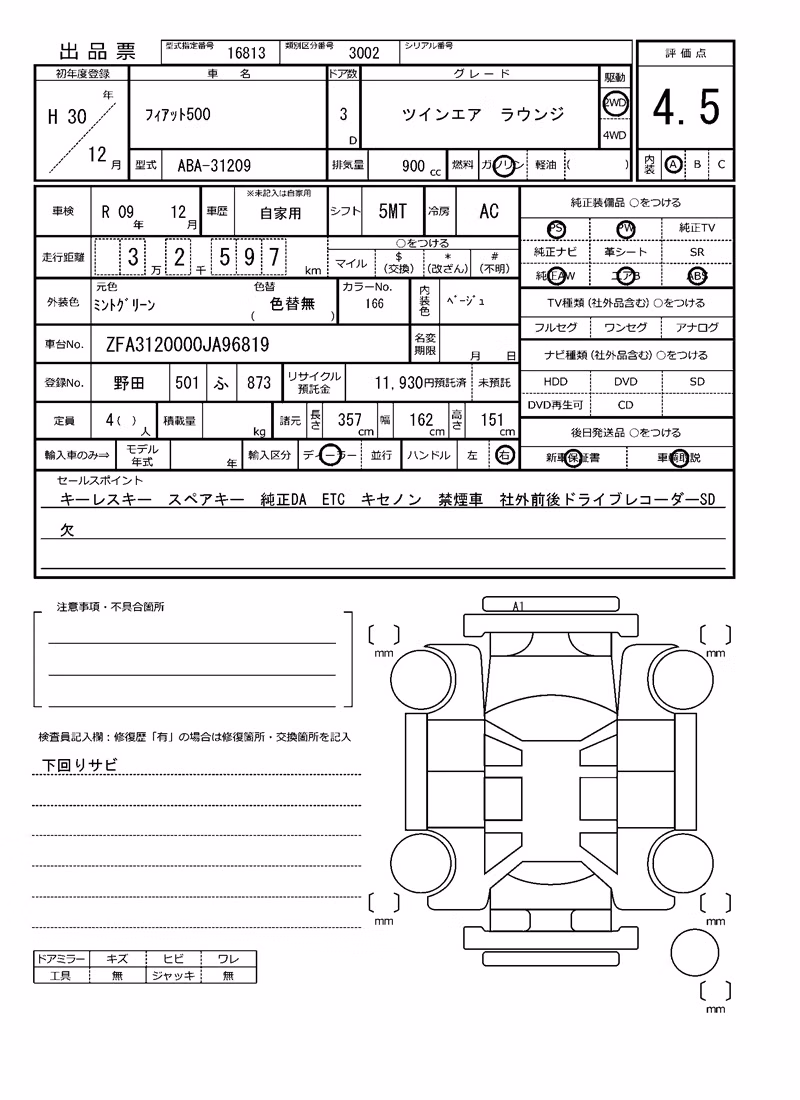 出品票 型式指定番号 16813 類別区分番号 3002 シリアル番号
評価点
初年度登録 車名 ドア数 グレード 駆動
H 30 年 12 月 フィアット500 3 D ツインエア ラウンジ 2WD 4WD
4.5
型式 ABA-31209 排気量 900 cc 燃料 ガソリン 軽油 ( )
内装 A B C
車検 R 09 年 12 月 車歴 ※未記入は自家用 自家用 シフト 5MT 冷房 AC
純正装備品 ○をつける
PS PW 純正TV
純正ナビ 革シート SR
純正AW エアB ABS
走行距離 3 万 2 千 5 9 7 km
○をつける
マイル $(交換) *(改ざん) #(不明)
外装色 元色 ミントグリーン 色替 色替無 ( ) カラーNo. 166 内装色 ベージュ
TV種類(社外品含む) ○をつける
フルセグ ワンセグ アナログ
車台No. ZFA3120000JA96819 名変期限 月 日
ナビ種類(社外品含む) ○をつける
HDD DVD SD
DVD再生可 CD
登録No. 野田 501 ふ 873 リサイクル預託金 11,930円預託済 未預託
定員 4( ) 人 積載量 kg 諸元 長さ 357 cm 幅 162 cm 高さ 151 cm
後日発送品 ○をつける
新車保証書 車輌取説
輸入車のみ⇒ モデル年式 年 輸入区分 ディーラー 並行 ハンドル 左 右
セールスポイント
キーレスキー スペアキー 純正DA ETC キセノン 禁煙車 社外前後ドライブレコーダーSD
欠
注意事項・不具合箇所
A1
mm
mm
検査員記入欄：修復歴「有」の場合は修復箇所・交換箇所を記入
下回りサビ
mm
mm
ドアミラー キズ ヒビ ワレ
工具 無 ジャッキ 無
mm